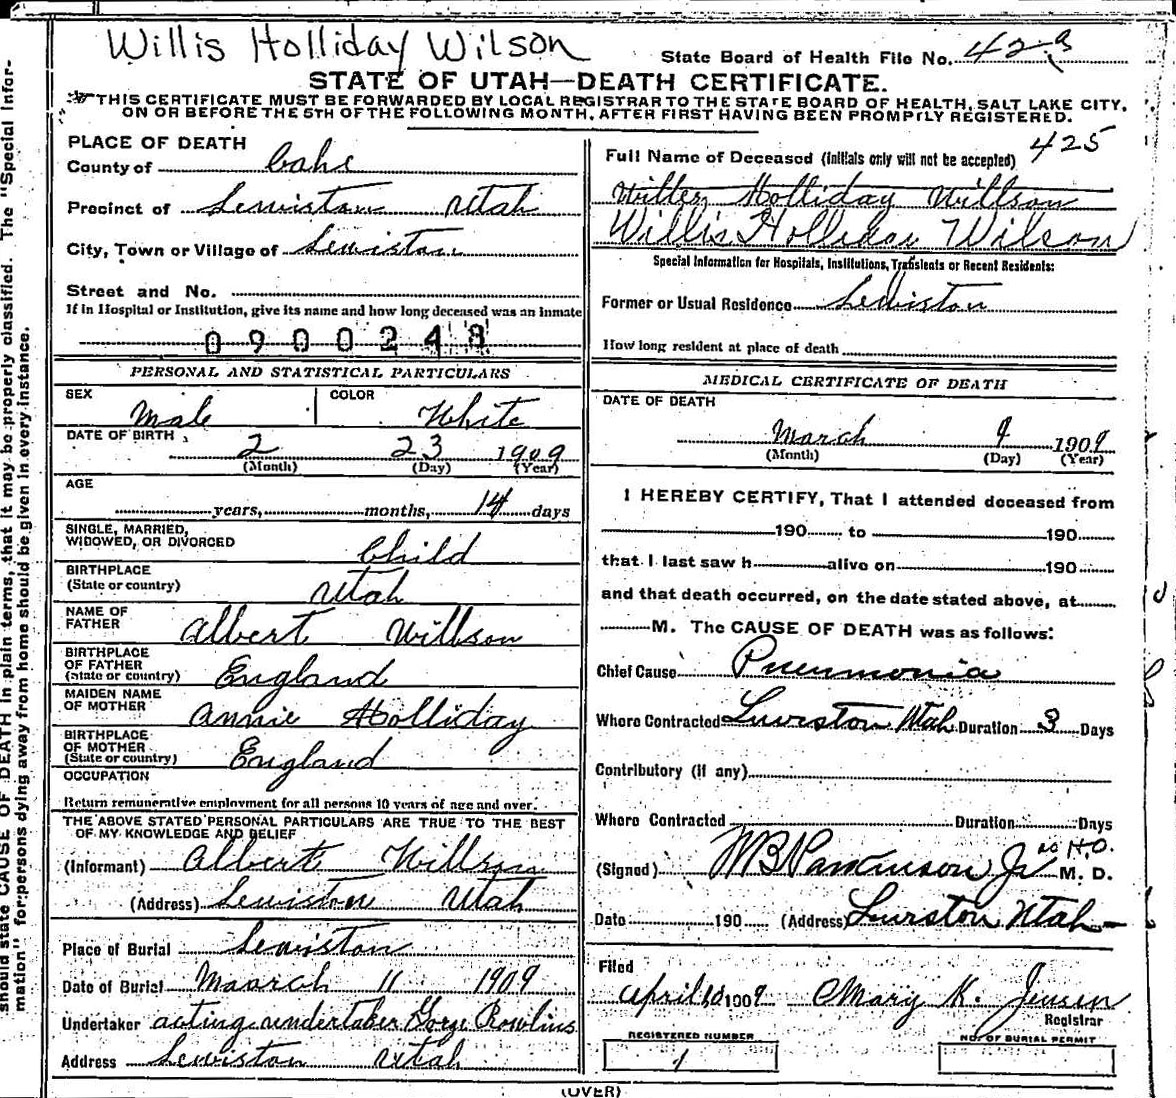 Willis Holliday Wilson
State Board of Health File No. 423
STATE OF UTAH—DEATH CERTIFICATE.
THIS CERTIFICATE MUST BE FORWARDED BY LOCAL REGISTRAR TO THE STATE BOARD OF HEALTH, SALT LAKE CITY,
ON OR BEFORE THE 5TH OF THE FOLLOWING MONTH, AFTER FIRST HAVING BEEN PROMPTLY REGISTERED.
PLACE OF DEATH
County of Cahe
Precinct of Lewiston Utah
City, Town or Village of Lewiston
Street and No.
If in Hospital or Institution, give its name and how long deceased was an inmate
0900248
PERSONAL AND STATISTICAL PARTICULARS
SEX Male COLOR White
DATE OF BIRTH 2 23 1909
(Month) (Day) (Year)
AGE
years, months, 14 days
SINGLE, MARRIED,
WIDOWED, OR DIVORCED Child
BIRTHPLACE
(State or country) Utah
NAME OF
FATHER Albert Willson
BIRTHPLACE
OF FATHER
(State or country) England
MAIDEN NAME
OF MOTHER Annie Holliday
BIRTHPLACE
OF MOTHER
(State or country) England
OCCUPATION
Return remunerative employment for all persons 10 years of age and over.
THE ABOVE STATED PERSONAL PARTICULARS ARE TRUE TO THE BEST
OF MY KNOWLEDGE AND BELIEF
(Informant) Albert Willson
(Address) Lewiston Utah
Place of Burial Lewiston
Date of Burial Maarch 11 1909
Undertaker acting undertaker Gorge Rowlins
Address Lewiston Utah
425
Full Name of Deceased (Initials only will not be accepted)
Willes Holliday Willson
Willis Holliday Wilson
Special Information for Hospitals, Institutions, Transients or Recent Residents:
Former or Usual Residence Lewiston
How long resident at place of death
MEDICAL CERTIFICATE OF DEATH
DATE OF DEATH
March 9 1909
(Month) (Day) (Year)
I HEREBY CERTIFY, That I attended deceased from
190 to 190
that I last saw h alive on 190
and that death occurred, on the date stated above, at
M. The CAUSE OF DEATH was as follows:
Chief Cause Pneumonia
Where Contracted Lewiston Utah Duration 3 Days
Contributory (if any)
Where Contracted Duration Days
(Signed) WB Parkinson Jr as H.O. M. D.
Date 190 (Address) Lewiston Utah
Filed
April 10 1909 Mary K. Jensen
Registrar
REGISTERED NUMBER
1
NO. OF BURIAL PERMIT
(OVER)
should state CAUSE OF DEATH in plain terms, that it may be properly classified. The "Special Infor-
mation" for persons dying away from home should be given in every instance.